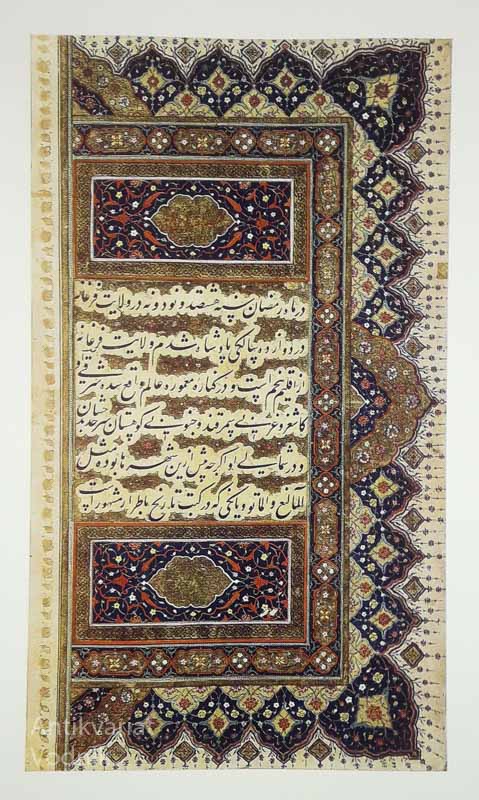 در ماه رمضان سنه هشتصد و نود و نه در ولایت فرغانه
در دوازده سالگی پادشاه شدم ولایت فرغانه
از اقلیم پنجم است و در کناره معموره عالم واقع شده شرقی
کاشغر و غربی سمرقند و جنوبی کوهستان سرحد بدخشان
و در شمالی او اگرچه پیش ازین شهرها بوده مثل
المالیغ و الماتو و یانگی که در کتب تاریخ باطرار مشهور است
Antikvariat